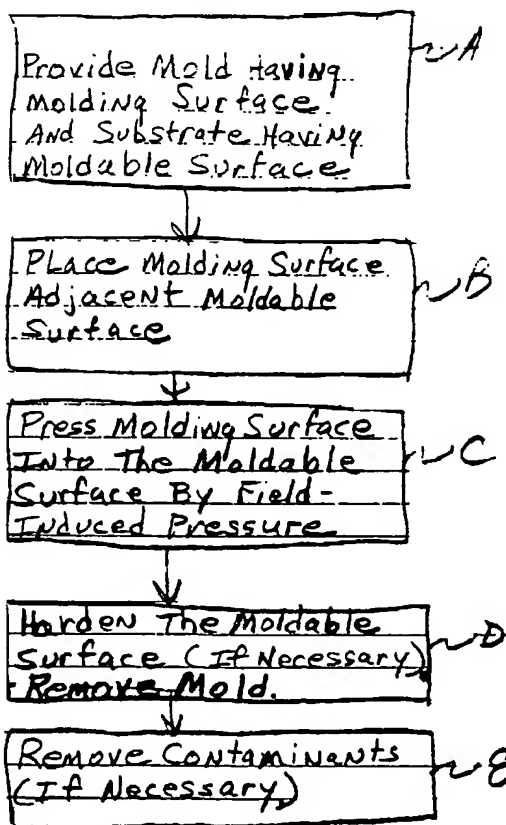 Provide Mold Having
Molding Surface
And Substrate Having
Moldable Surface
A
Place Molding Surface
Adjacent Moldable
Surface
B
Press Molding Surface
Into The Moldable
Surface By Field-
Induced Pressure
C
Harden The Moldable
Surface (If Necessary)
Remove Mold.
D
Remove Contaminants
(If Necessary)
E